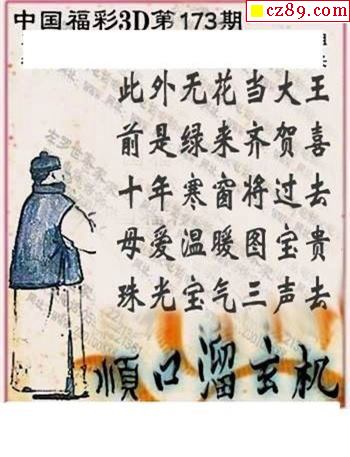 cz89.com
中国福彩3D第173期
此外无花当大王
前是绿来齐贺喜
十年寒窗将过去
母爱温暖图宝贵
珠光宝气三声去
顺口溜玄机